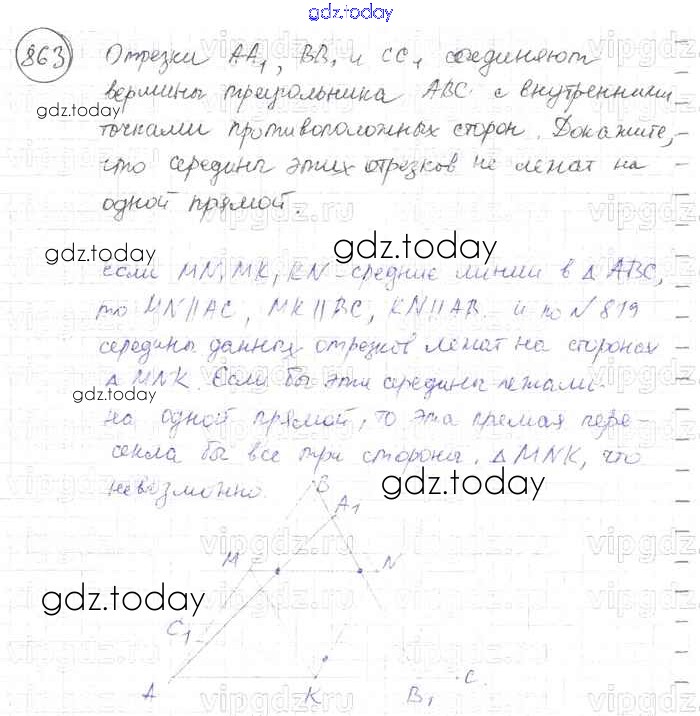 gdz.today
863 Отрезки AA₁, BB₁ и CC₁ соединяют
вершины треугольника ABC с внутренними
точками противоположных сторон. Докажите,
что середины этих отрезков не лежат на
одной прямой.
gdz.today
gdz.today
gdz.today
если MN, MK, KN - средние линии в △ ABC,
то MN || AC, MK || BC, KN || AB и по N 819
середины данных отрезков лежат на сторонах
△ MNK. Если бы эти середины лежали
на одной прямой, то эта прямая пере-
секла бы все три стороны △ MNK, что
невозможно.
gdz.today
gdz.today
gdz.today
B
A₁
M
N
C₁
A
K
B₁
C
vipgdz.ru
vipgdz.ru
vipgdz.ru
vipgdz.ru
vipgdz.ru